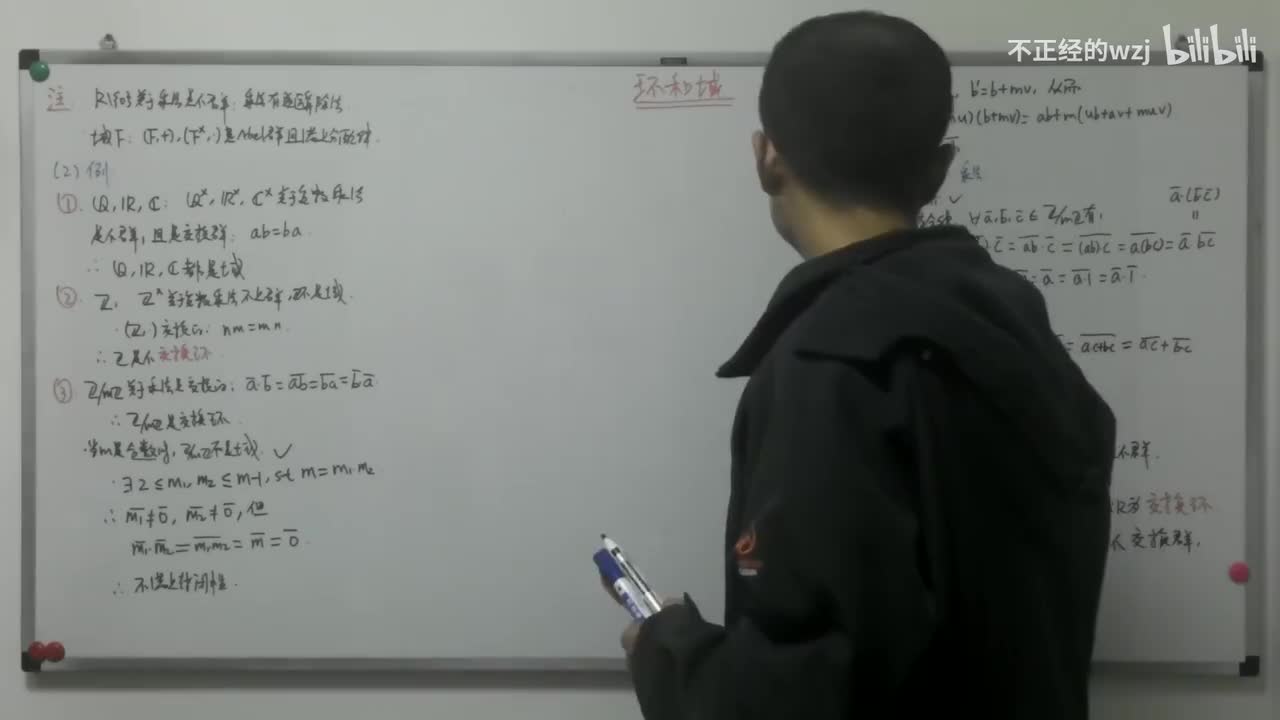 不正经的wzj bilibili
环和域
注 R\{0}关于乘法是个群:乘法有逆运算除法
域F:(F,+),(F^×,·)是Abel群且满足分配律.
(2)例
① ℚ,ℝ,ℂ: ℚ^×,ℝ^×,ℂ^×关于复数乘法
是个群,且是交换群: ab=ba.
∴ ℚ,ℝ,ℂ都是域
② ℤ, ℤ^×关于整数乘法不是群,ℤ不是域.
(ℤ,·)交换的: nm=mn.
∴ ℤ是个交换环.
③ ℤ/mℤ关于乘法是交换的: a̅·b̅=a̅b̅=b̅a̅=b̅·a̅
∴ ℤ/mℤ是交换环.
·当m是合数时,ℤ/mℤ不是域. ✓
·∃ 2≤m₁,m₂≤m-1, s.t. m=m₁m₂
∴ m̅₁≠0̅, m̅₂≠0̅,但
m̅₁·m̅₂=m̅₁m̅₂=m̅=0̅.
∴ 不满足封闭性.
, b'=b+mv, 从而
u)(b+mv)=ab+m(ub+av+muv)
乘法
✓
∀a̅,b̅,c̅∈ℤ/mℤ有,
a̅·(b̅c̅)
=
c̅=a̅b̅·c̅=(ab)c=a(bc)=a̅·b̅c̅
=a̅=a̅1̅=a̅·1̅.
=ac+bc=a̅c̅+b̅c̅
个群.
R为交换环.
交换群,